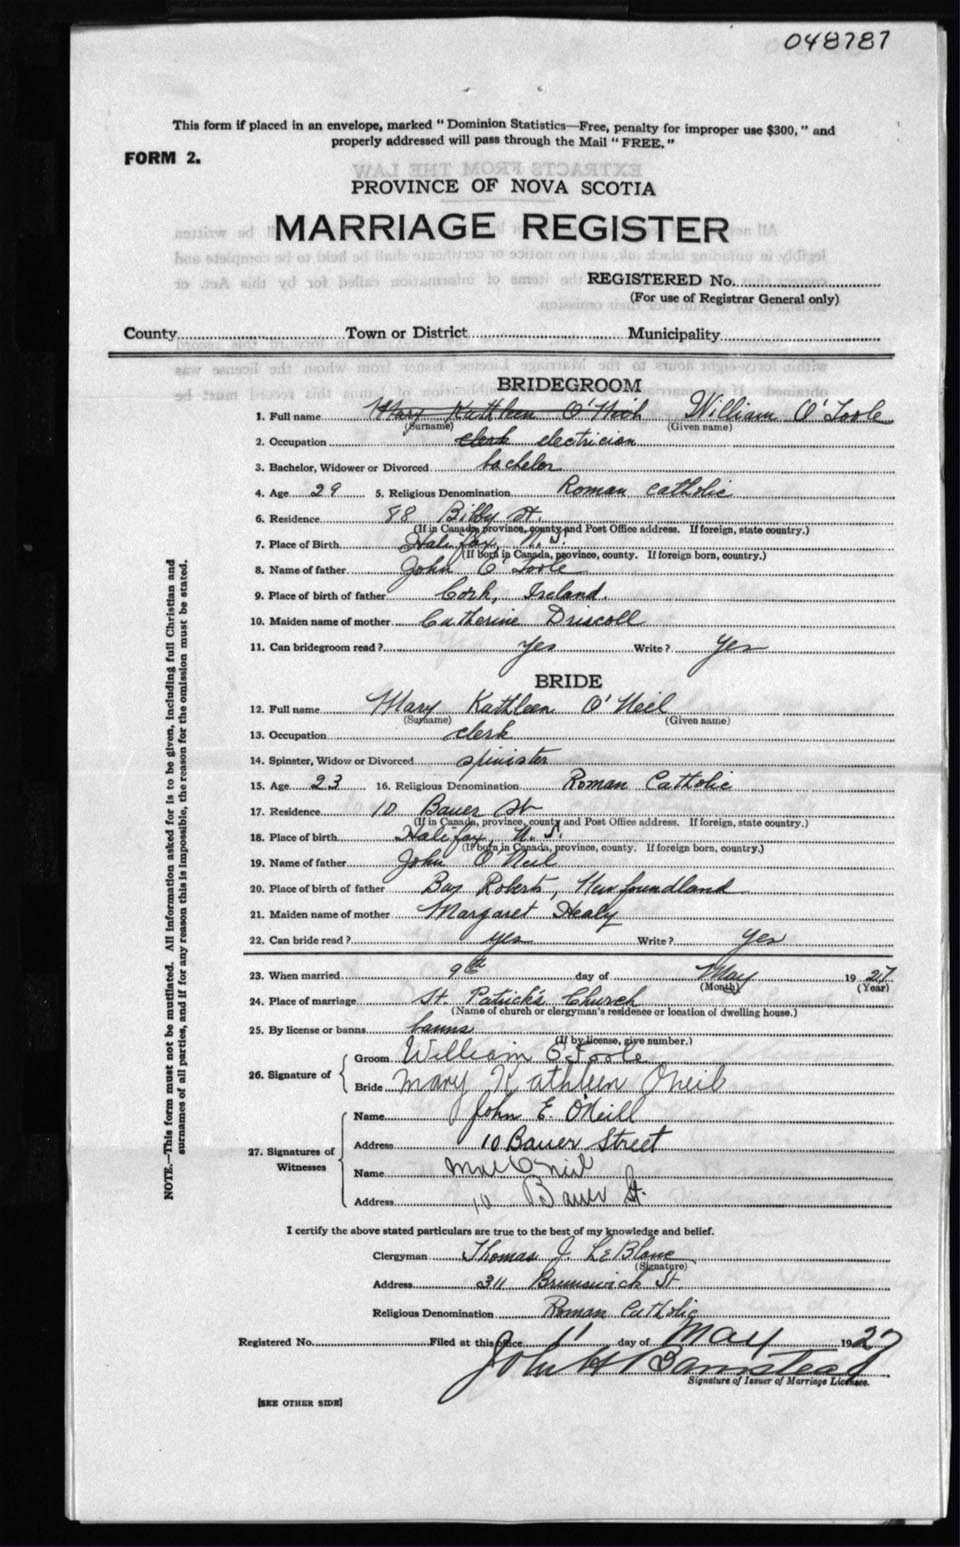 048787
This form if placed in an envelope, marked " Dominion Statistics—Free, penalty for improper use $300, " and
properly addressed will pass through the Mail " FREE. "
FORM 2.
PROVINCE OF NOVA SCOTIA
MARRIAGE REGISTER
REGISTERED No.
(For use of Registrar General only)
County Town or District Municipality
BRIDEGROOM
1. Full name Mary Kathleen William O'Toole
(Surname) (Given name)
2. Occupation clerk electrician
3. Bachelor, Widower or Divorced bachelor
4. Age 29 5. Religious Denomination Roman Catholic
6. Residence 88 Bilby St.
(If in Canada, province, county and Post Office address. If foreign, state country.)
7. Place of Birth Halifax N.S.
(If born in Canada, province, county. If foreign born, country.)
8. Name of father John O'Toole
9. Place of birth of father Cork, Ireland.
10. Maiden name of mother Catherine Driscoll
11. Can bridegroom read? yes Write? yes
BRIDE
12. Full name Mary Kathleen O'Neil
(Surname) (Given name)
13. Occupation clerk
14. Spinster, Widow or Divorced spinister
15. Age 23 16. Religious Denomination Roman Catholic
17. Residence 10 Bauer St
(If in Canada, province, county and Post Office address. If foreign, state country.)
18. Place of birth Halifax, N.S.
(If born in Canada, province, county. If foreign born, country.)
19. Name of father John O'Neil
20. Place of birth of father Bay Roberts, Newfoundland
21. Maiden name of mother Margaret Healy
22. Can bride read? yes Write? yes
23. When married 9th day of May 1927
(Month) (Year)
24. Place of marriage St. Patrick's Church
(Name of church or clergyman's residence or location of dwelling house.)
25. By license or banns banns
(If by license, give number.)
26. Signature of Groom William O'Toole
Bride Mary Kathleen O'Neil
27. Signatures of Witnesses Name John E. O'Neill
Address 10 Bauer Street
Name Mae O'Neil
Address 10 Bauer St.
I certify the above stated particulars are true to the best of my knowledge and belief.
Clergyman Thomas J. LeBlanc
(Signature)
Address 311 Brunswick St
Religious Denomination Roman Catholic
Registered No. Filed at this office 11 day of May 1927
John H Barnstead
Signature of Issuer of Marriage Licenses.
[SEE OTHER SIDE]
NOTE.—This form must not be mutilated. All information asked for is to be given, including full Christian and
surnames of all parties, and if for any reason this is impossible, the reason for the omission must be stated.